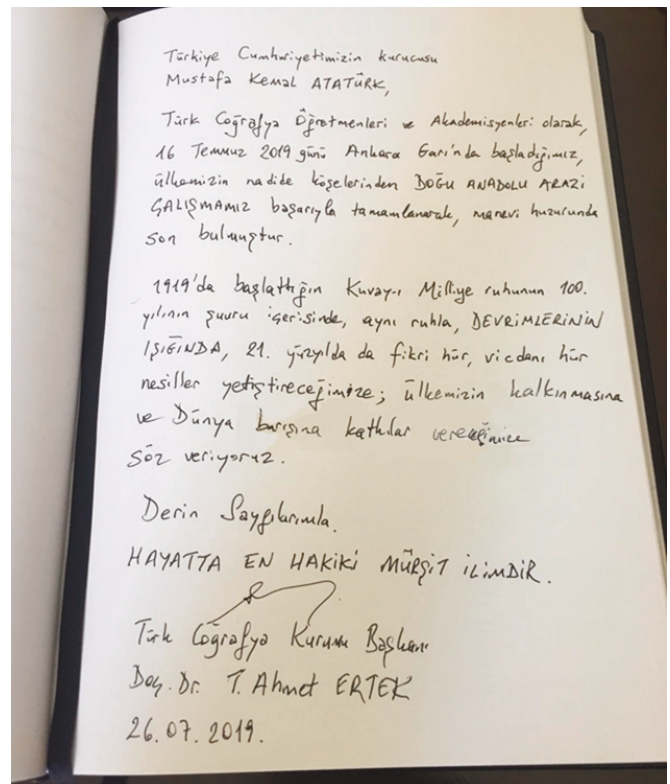 Türkiye Cumhuriyetimizin kurucusu
Mustafa Kemal ATATÜRK,
Türk Coğrafya Öğretmenleri ve Akademisyenleri olarak,
16 Temmuz 2019 günü Ankara Garı'nda başladığımız,
ülkemizin nadide köşelerinden DOĞU ANADOLU ARAZİ
ÇALIŞMAMIZ başarıyla tamamlanarak, manevi huzurunda
son bulmuştur.
1919'da başlattığın Kuvay-ı Milliye ruhunun 100.
yılının şuuru içerisinde, aynı ruhla, DEVRİMLERİNİN
IŞIĞINDA, 21. yüzyılda da fikri hür, vicdanı hür
nesiller yetiştireceğimize; ülkemizin kalkınmasına
ve Dünya barışına katkılar vereceğimize
söz veriyoruz.
Derin Saygılarımla.
HAYATTA EN HAKİKİ MÜRŞİT İLİMDİR.
Türk Coğrafya Kurumu Başkanı
Doç. Dr. T. Ahmet ERTEK
26.07.2019.